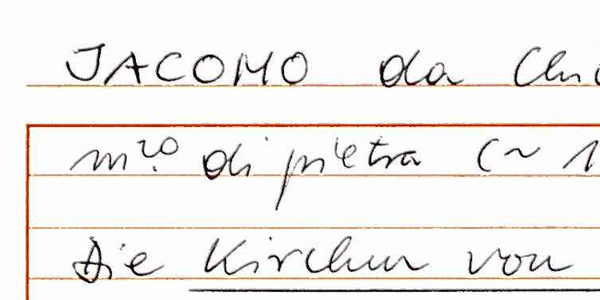 JACOMO da Chi
m.ro di pietra (~ 1
Die Kirchen von